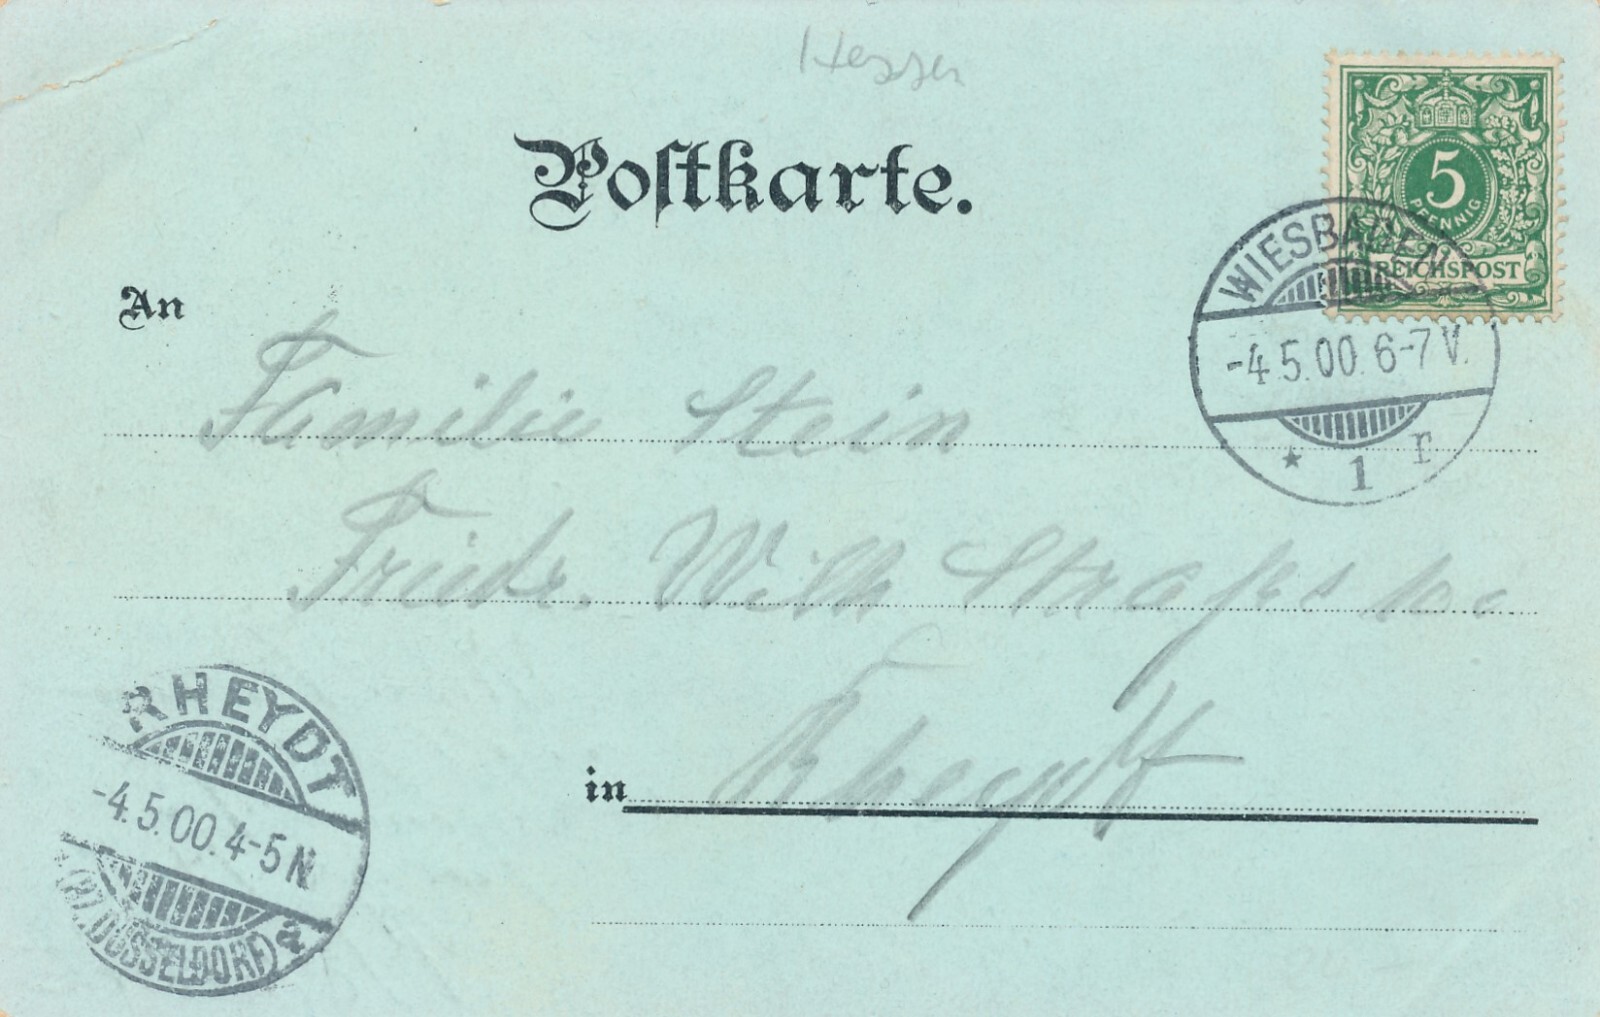 Hessen
Postkarte.
5
PFENNIG
REICHSPOST
WIESBADEN
-4.5.00.6-7V.
* 1 r
An
Familie Stein
Friedr. Wilh Strasse
in Rheydt
RHEYDT
-4.5.00.4-5N
(BZ.DÜSSELDORF)